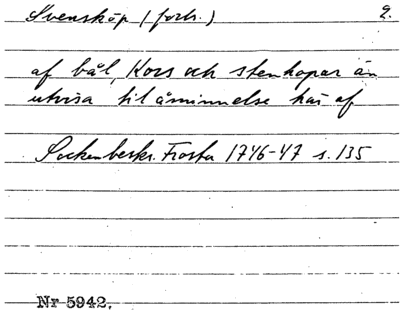 Svensköp (forts.) 2.
af bål, Kors och stenhopar än
utvisa til åminnelse här af
Sockenbeskr. Frosta 1746-47 s. 135
Nr 5942.